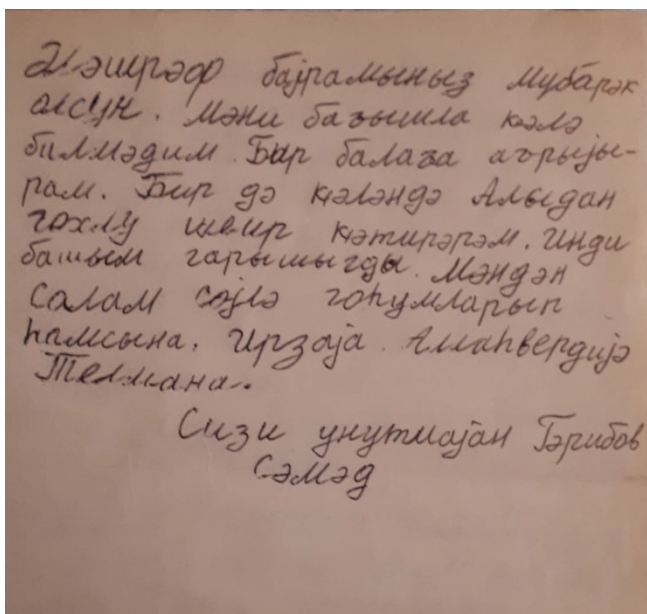 Әшрәф бајрамыныз мубарәк
олсун. Мәни бағышла кәлә
билмәдим. Бир балаға ағрыјы-
рам. Бир дә кәләндә Алыдан
чохлу шеир кәтирәрәм. Инди
башым гарышыгды. Мәндән
Салам сөјлә гоһумларын
һамсына. Ирзаја. Аллаһвердијә
Телмана.
Сизи унутмајан Гәрибов
Сәмәд